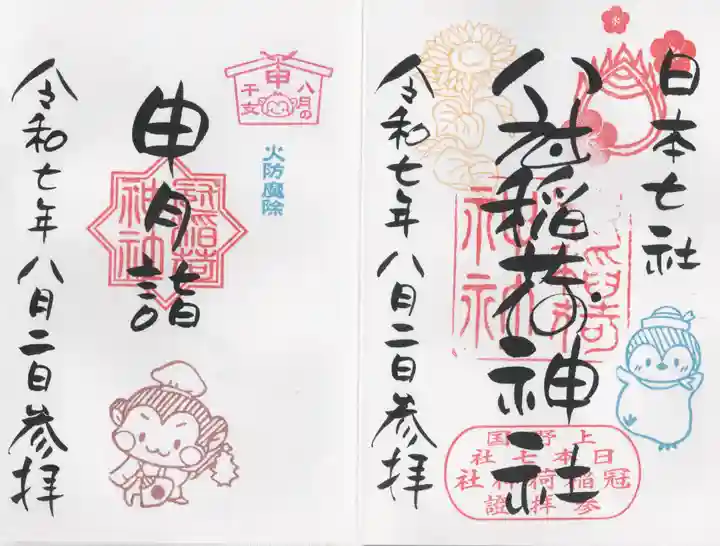 日本七社
冠稲荷神社
令和七年八月二日参拝
冠稲荷
神社
上野国
日本七社
冠稲荷神社
参拝證
申
八月の
干支
火防魔除
申月詣
冠稲荷
神社
令和七年八月二日参拝